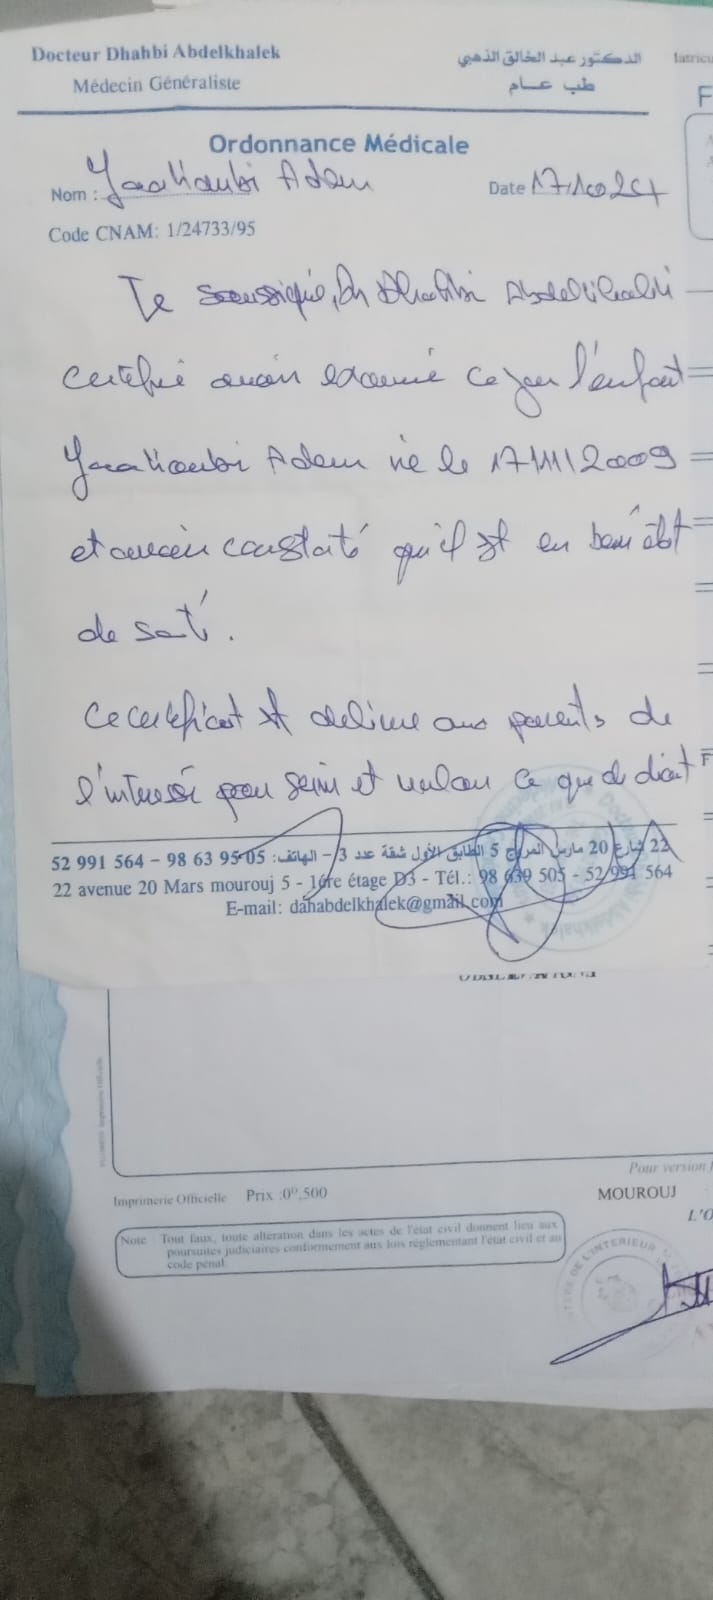 Docteur Dhahbi Abdelkhalek
الدكتور عبد الخالق الذهبي
Médecin Généraliste
طب عـــام
Ordonnance Médicale
Nom : Yaakoubi Adem
Date 17/10
Code CNAM: 1/24733/95
Je soussigné, Dr Dhahbi Abdelkhalek
certifie avoir examiné ce jour l'enfant
Yaakoubi Adem né le 17/11/2009
et avoir constaté qu'il est en bon état
de santé.
Ce certificat est délivré aux parents de
l'intéressé pour servir et valoir ce que de droit
22 شارع 20 مارس المروج 5 الطابق الأول شقة عدد 3 - الهاتف: 05 95 63 98 - 564 991 52
22 avenue 20 Mars mourouj 5 - 1ère étage D3 - Tél.: 98 639 505 - 52 991 564
E-mail: dahabdelkhalek@gmail.com
Pour version
Imprimerie Officielle Prix :0ᴰ,500
MOUROUJ
L'O
Note : Tout faux, toute altération dans les actes de l'état civil donnent lieu aux
poursuites judiciaires conformement aux lois réglementant l'état civil et au
code pénal.
DE L'INTERIEUR